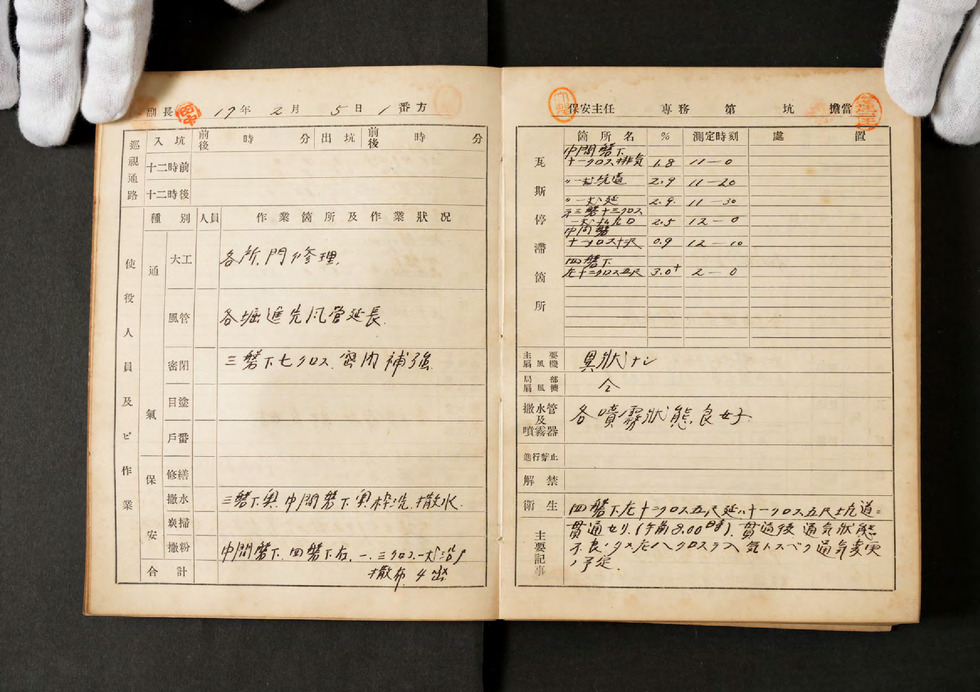 副長 19年 2月 5日 1番方
巡視通路
入坑 前後 時 分 出坑 前後 時 分
十二時前
十二時後
使役人員及ビ作業
種別 人員 作業箇所及作業狀況
通氣
大工 各所、門の修理、
風管 各堀進先風管延長
密閉 三磐下七クロス、密閉補強
目塗
戸番
保安
修繕
撒水 三磐下奥、中間磐下奥枠洗、撒水
炭掃
撒粉 中間磐下、四磐下右、一、三クロス
撒布
合計
保安主任 専務 第 坑 擔當
瓦斯停滯箇所
箇所名 % 測定時刻 處置
中間磐下
十一クロス排気 1.8 11-0
〃一丈坑道 2.9 11-20
〃一丈延 2.9 11-30
三磐十三クロス
2.5 12-0
中間磐
十一クロス十尺 0.9 12-10
四磐下
左十二クロス五尺 3.0+ 2-0
主要扇風機 異狀ナシ
局部扇風機 仝
撒水管及噴霧器 各噴霧狀態良好
進行禁止
解禁
衛生
主要記事
四磐下左十二クロス五尺延ハ十一クロス五尺坑道ニ
貫通セリ(午前8.00時)、貫通後通気狀態
不良ノタメ左八クロス 通気変更
ノ予定